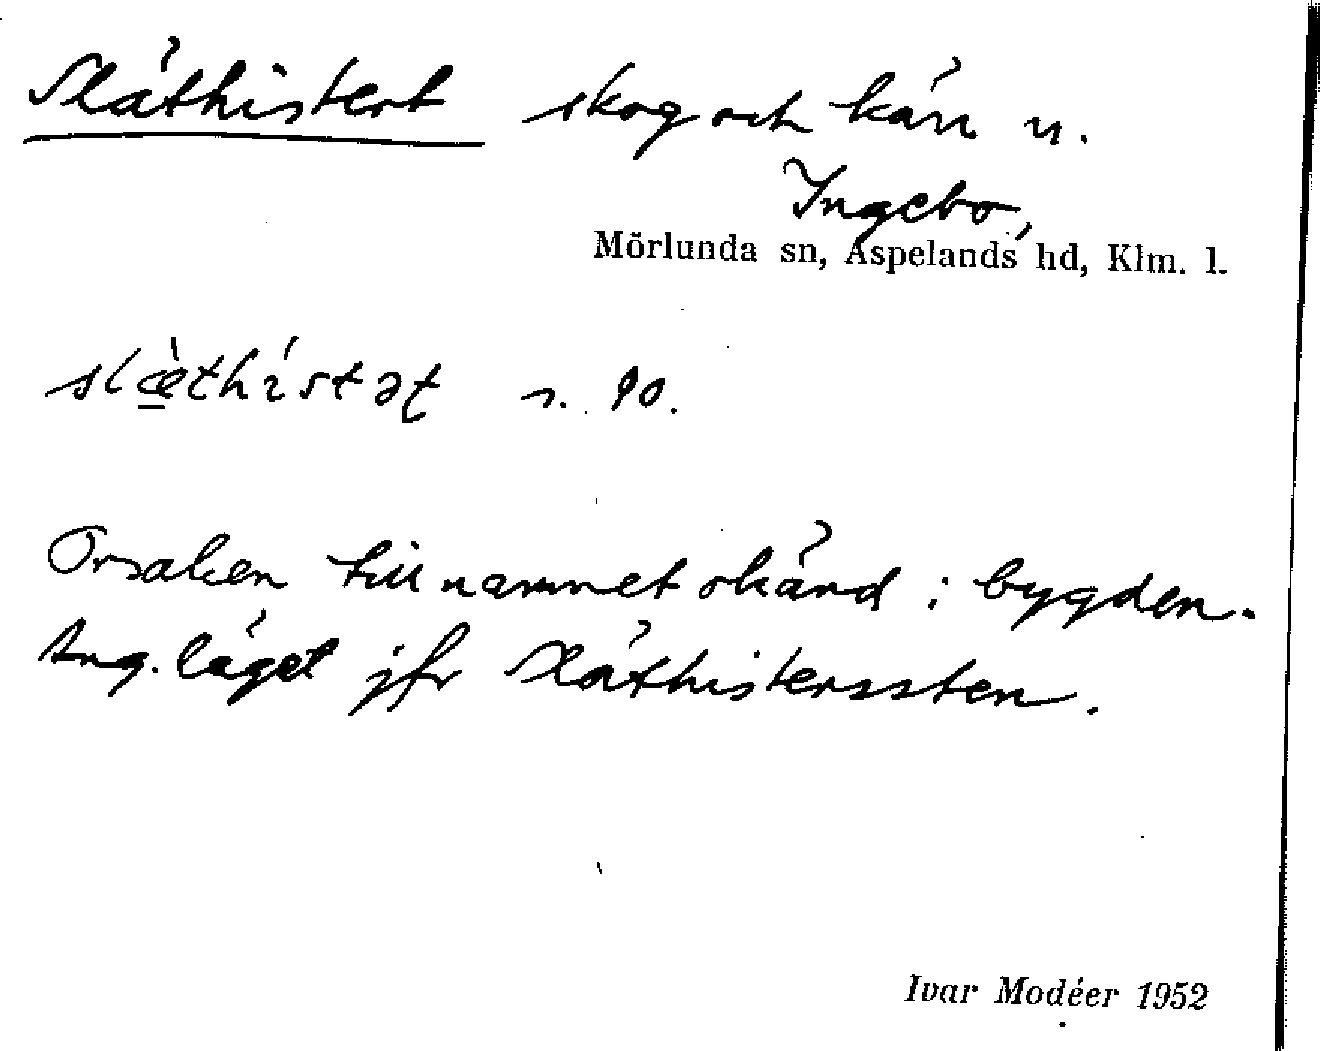 Släthistert skog och kärr n.
Ingebo,
Mörlunda sn, Aspelands hd, Klm. l.
slæ̀thístəʈ s. 90.
Orsaken till namnet okänd i bygden.
Ang. läget jfr Släthisterssten.
Ivar Modéer 1952